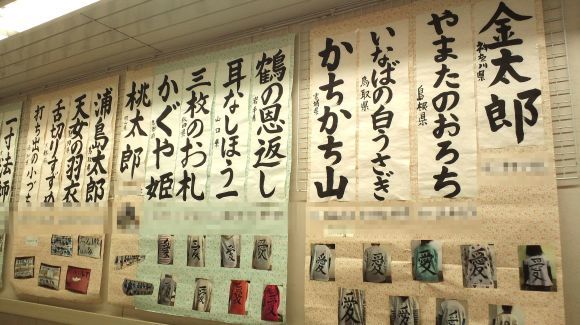 金太郎
神奈川県
やまたのおろち
島根県
いなばの白うさぎ
鳥取県
かちかち山
鶴の恩返し
耳なしほう一
山口県
三枚のお札
かぐや姫
桃太郎
浦島太郎
天女の羽衣
舌切りすずめ
打ち出の小づち
一寸法師
愛
愛
愛
愛
愛
愛
愛
愛
愛
愛
愛
愛